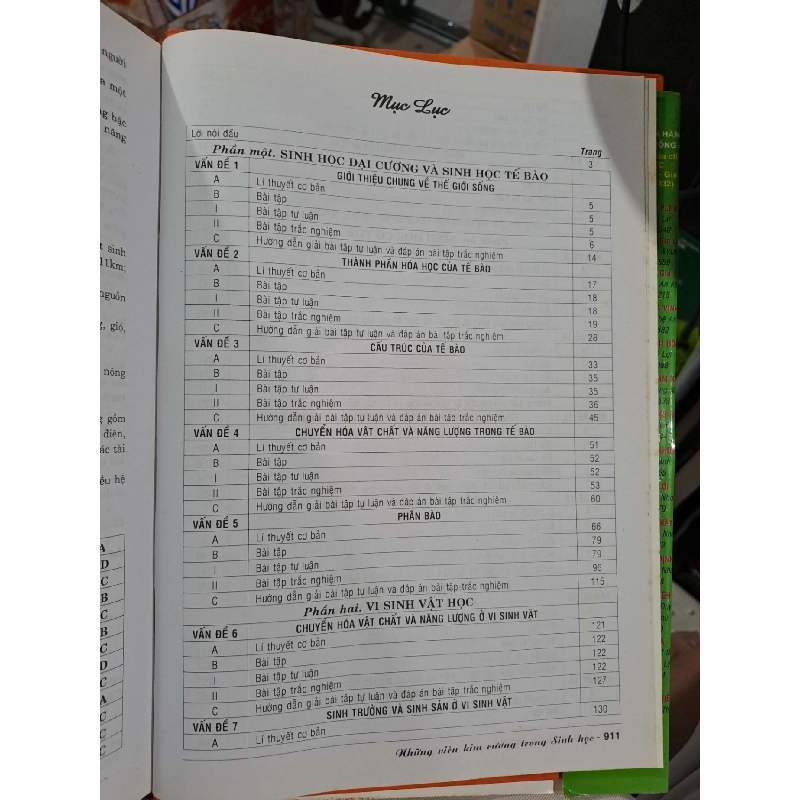 người
a một
ng bậc
nâng
t sinh
11km;
nguồn
g, gió,
nông
g gồm
điện,
ác tài
ều hệ
A
D
C
B
C
B
C
D
C
A
C
C
C
Mục Lục
Lời nói đầu Trang
Phần một. SINH HỌC ĐẠI CƯƠNG VÀ SINH HỌC TẾ BÀO 3
VẤN ĐỀ 1 GIỚI THIỆU CHUNG VỀ THẾ GIỚI SỐNG
A Lí thuyết cơ bản 5
B Bài tập 5
I Bài tập tự luận 5
II Bài tập trắc nghiệm 6
C Hướng dẫn giải bài tập tự luận và đáp án bài tập trắc nghiệm 14
VẤN ĐỀ 2 THÀNH PHẦN HÓA HỌC CỦA TẾ BÀO
A Lí thuyết cơ bản 17
B Bài tập 18
I Bài tập tự luận 18
II Bài tập trắc nghiệm 19
C Hướng dẫn giải bài tập tự luận và đáp án bài tập trắc nghiệm 28
VẤN ĐỀ 3 CẤU TRÚC CỦA TẾ BÀO
A Lí thuyết cơ bản 33
B Bài tập 35
I Bài tập tự luận 35
II Bài tập trắc nghiệm 36
C Hướng dẫn giải bài tập tự luận và đáp án bài tập trắc nghiệm 45
VẤN ĐỀ 4 CHUYỂN HÓA VẬT CHẤT VÀ NĂNG LƯỢNG TRONG TẾ BÀO
A Lí thuyết cơ bản 51
B Bài tập 52
I Bài tập tự luận 52
II Bài tập trắc nghiệm 53
C Hướng dẫn giải bài tập tự luận và đáp án bài tập trắc nghiệm 60
VẤN ĐỀ 5 PHÂN BÀO
A Lí thuyết cơ bản 66
B Bài tập 79
I Bài tập tự luận 79
II Bài tập trắc nghiệm 96
C Hướng dẫn giải bài tập tự luận và đáp án bài tập trắc nghiệm 115
Phần hai. VI SINH VẬT HỌC
VẤN ĐỀ 6 CHUYỂN HÓA VẬT CHẤT VÀ NĂNG LƯỢNG Ở VI SINH VẬT
A Lí thuyết cơ bản 121
B Bài tập 122
I Bài tập tự luận 122
II Bài tập trắc nghiệm 127
C Hướng dẫn giải bài tập tự luận và đáp án bài tập trắc nghiệm
VẤN ĐỀ 7 SINH TRƯỞNG VÀ SINH SẢN Ở VI SINH VẬT 130
A Lí thuyết cơ bản
Những viên kim cương trong Sinh học - 911